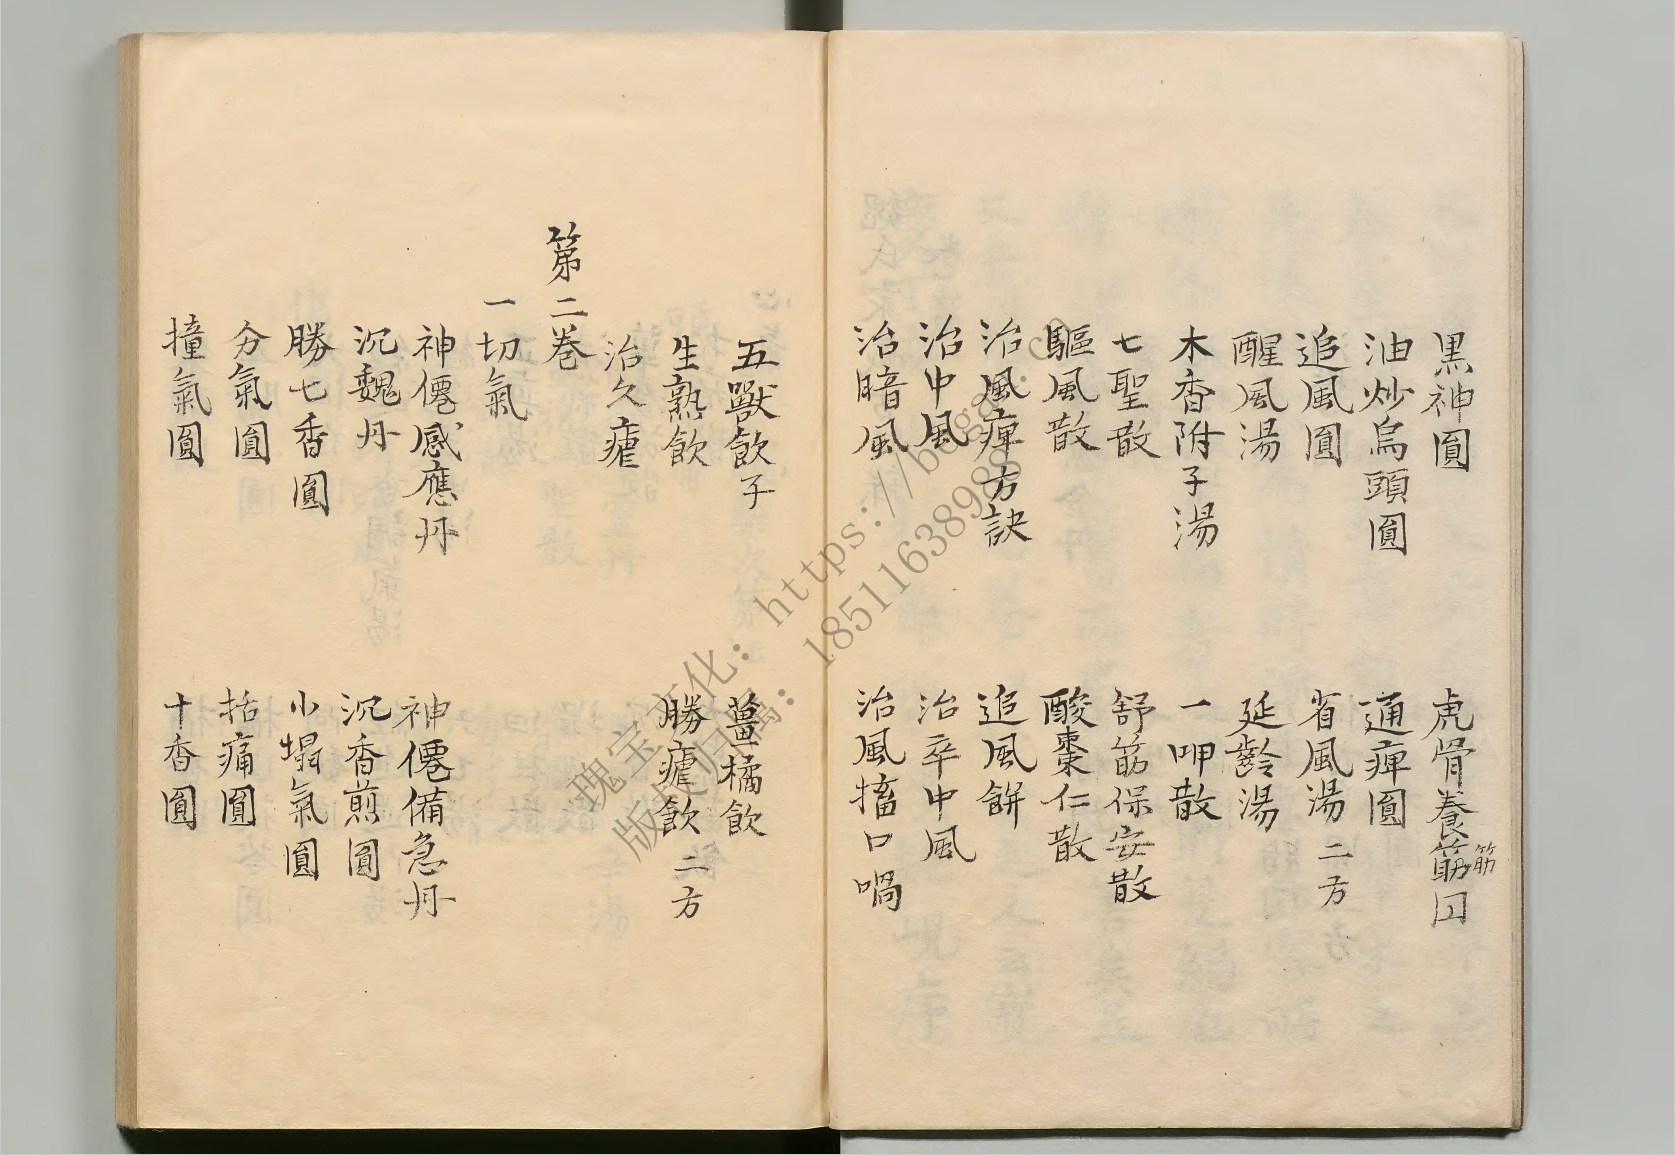 黒神圓　虎骨養筋圓
筋
油炒烏頭圓　通痺圓
追風圓　省風湯二方
醒風湯　延齡湯
木香附子湯　一呷散
七聖散　舒筋保安散
驅風散　酸棗仁散
治風痺方訣　追風餅
治中風　治卒中風
治暗風　治風搐口喎
五獸飲子　薑橘飲
生熟飲　勝瘧飲二方
治久瘧
第二卷
一切氣
神僊感應丹　神僊備急丹
沉魏丹　沉香煎圓
勝七香圓　小塌氣圓
分氣圓　括痛圓
撞氣圓　十香圓
瑰宝文化：https://bgg
版 归属：18511638989